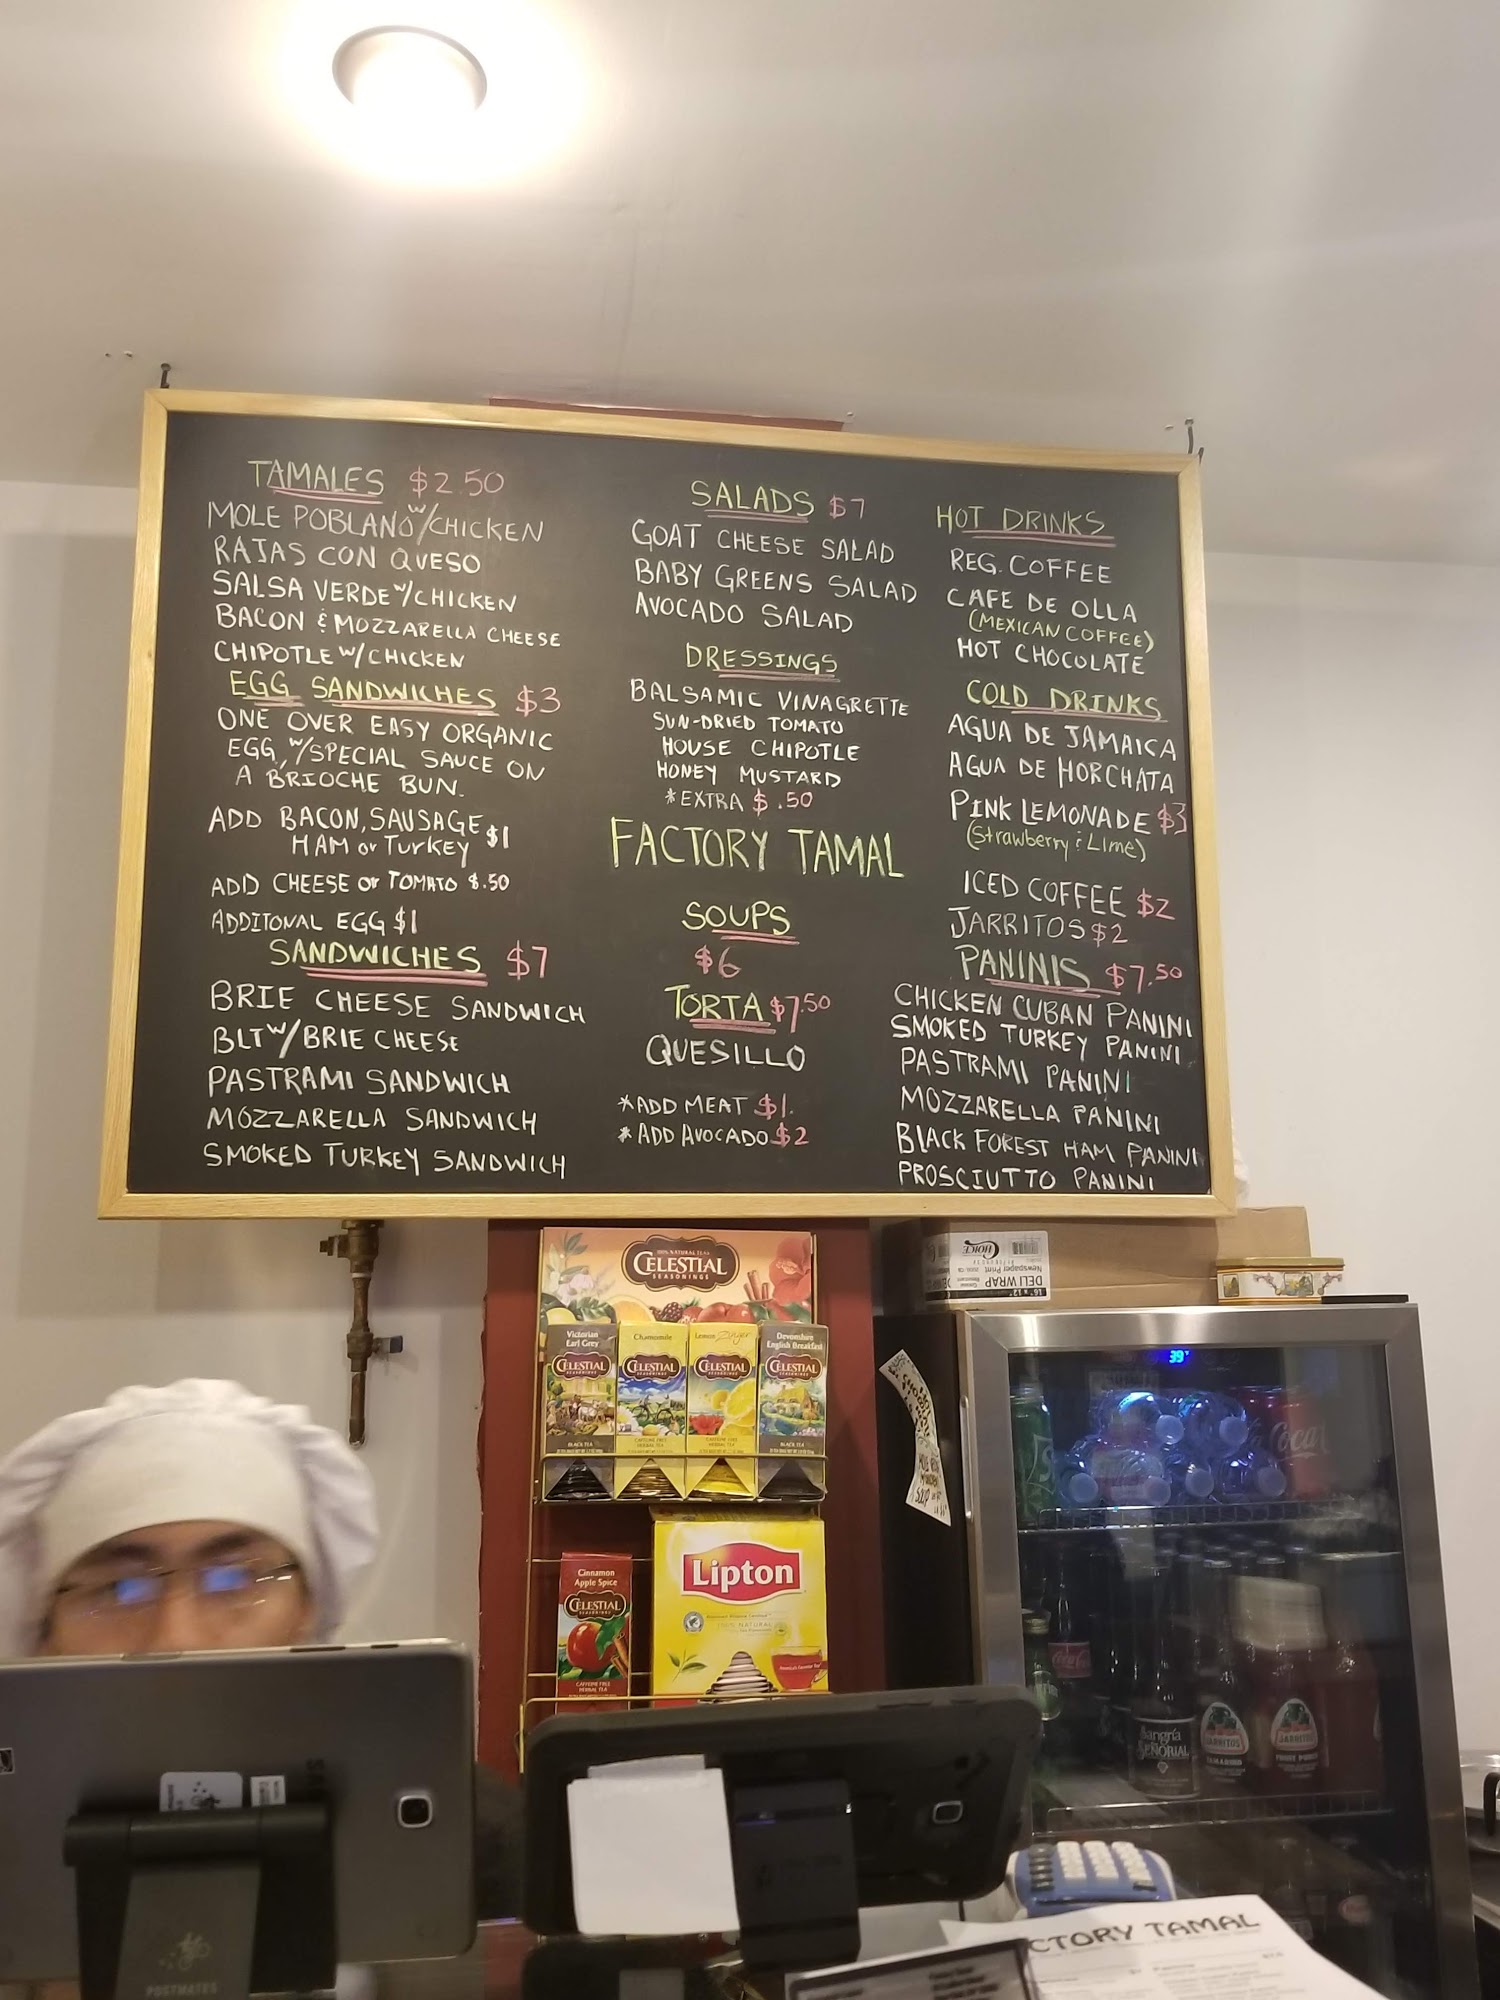 TAMALES $2.50
MOLE POBLANO W/CHICKEN
RAJAS CON QUESO
SALSA VERDE W/CHICKEN
BACON & MOZZARELLA CHEESE
CHIPOTLE W/CHICKEN
EGG SANDWICHES $3
ONE OVER EASY ORGANIC
EGG, W/SPECIAL SAUCE ON
A BRIOCHE BUN.
ADD BACON, SAUSAGE $1
HAM or Turkey
ADD CHEESE or TOMATO $.50
ADDITONAL EGG $1
SANDWICHES $7
BRIE CHEESE SANDWICH
BLT W/BRIE CHEESE
PASTRAMI SANDWICH
MOZZARELLA SANDWICH
SMOKED TURKEY SANDWICH
SALADS $7
GOAT CHEESE SALAD
BABY GREENS SALAD
AVOCADO SALAD
DRESSINGS
BALSAMIC VINAGRETTE
SUN-DRIED TOMATO
HOUSE CHIPOTLE
HONEY MUSTARD
*EXTRA $.50
FACTORY TAMAL
SOUPS
$6
TORTA $7.50
QUESILLO
*ADD MEAT $1.
*ADD AVOCADO $2
HOT DRINKS
REG. COFFEE
CAFE DE OLLA
(MEXICAN COFFEE)
HOT CHOCOLATE
COLD DRINKS
AGUA DE JAMAICA
AGUA DE HORCHATA
PINK LEMONADE $3
(Strawberry & Lime)
ICED COFFEE $2
JARRITOS $2
PANINIS $7.50
CHICKEN CUBAN PANINI
SMOKED TURKEY PANINI
PASTRAMI PANINI
MOZZARELLA PANINI
BLACK FOREST HAM PANINI
PROSCIUTTO PANINI
100% NATURAL TEAS
CELESTIAL
SEASONINGS
Victorian
Earl Grey
CELESTIAL
BLACK TEA
Chamomile
CELESTIAL
CAFFEINE FREE
HERBAL TEA
Lemon Zinger
CELESTIAL
CAFFEINE FREE
HERBAL TEA
Devonshire
English Breakfast
CELESTIAL
BLACK TEA
Cinnamon
Apple Spice
CELESTIAL
SEASONINGS
CAFFEINE FREE
HERBAL TEA
Lipton
100% NATURAL
CHOICE
DELI WRAP
Newspaper Print
16" x 12"
39°
Coca
Coca-Cola
Sangría
SEÑORIAL
JARRITOS
TAMARIND
JARRITOS
FRUIT PUNCH
POSTMATES
CTORY TAMAL